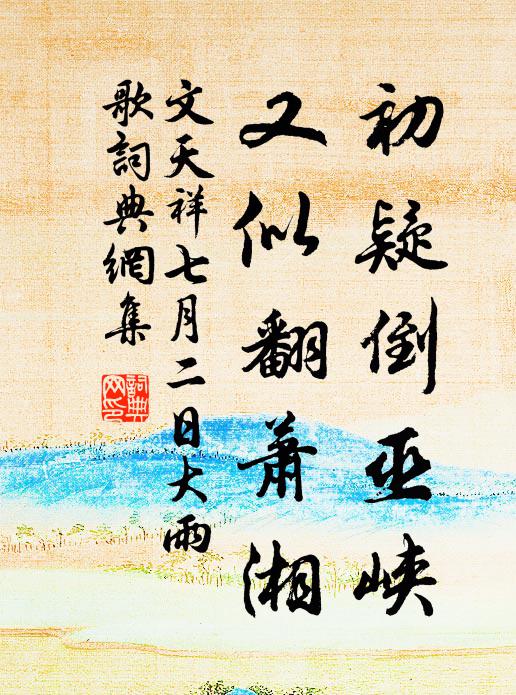 初疑倒巫峽
又似翻蕭湘
文天祥七月二日大雨
歌詞典網集
詞典網印